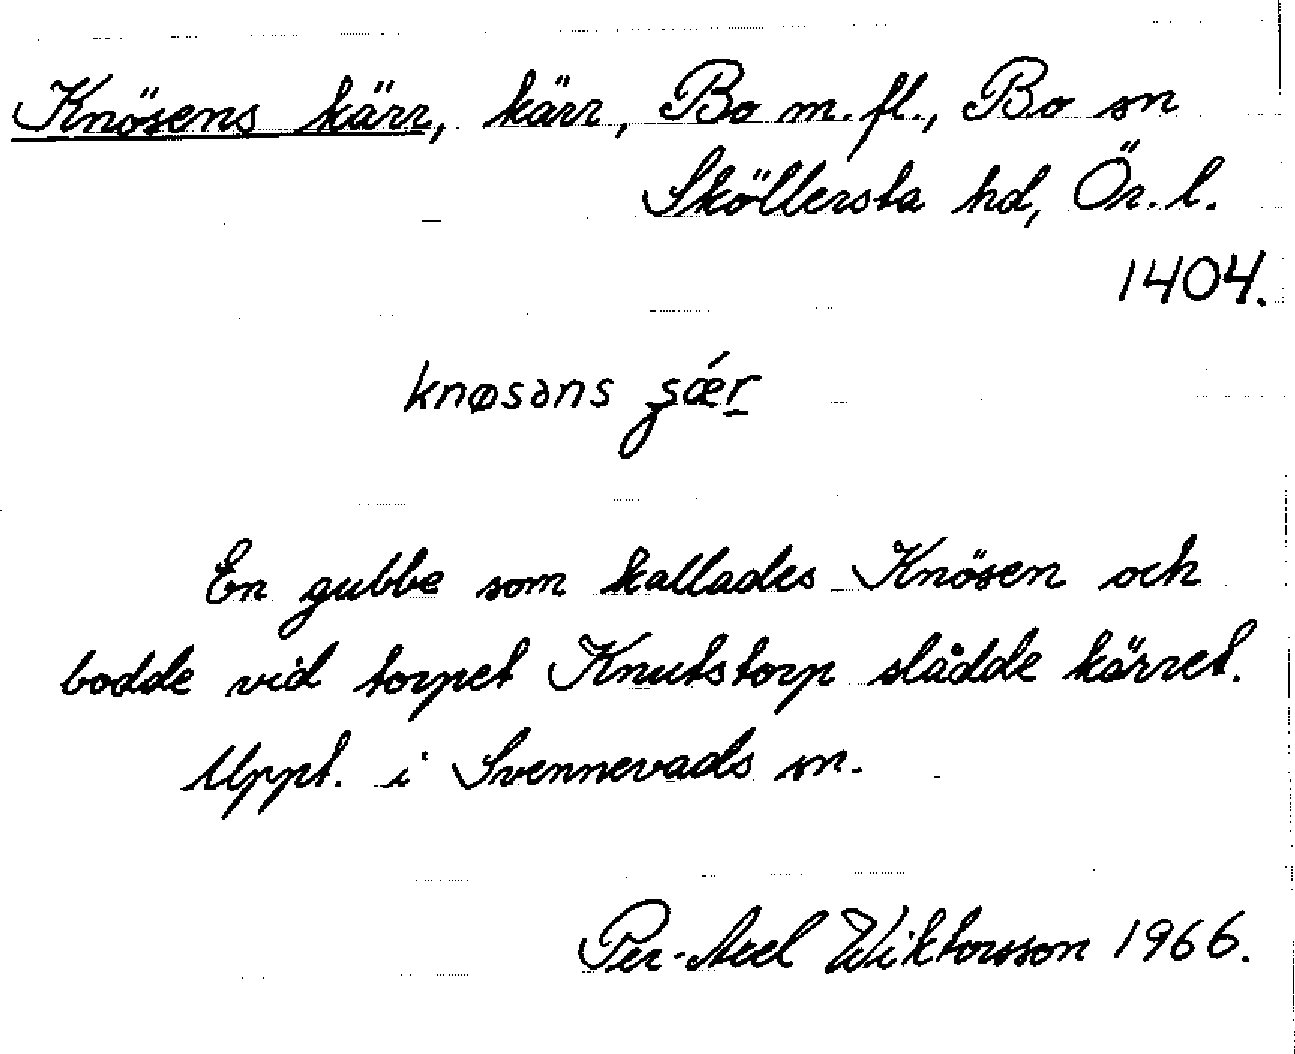 Knösens kärr, kärr, Bo m.fl., Bo sn
Sköllersta hd, Ör. l.
1404.
knøsəns ʂǽr
En gubbe som kallades Knösen och
bodde vid torpet Knutstorp slådde kärret.
Uppt. i Svennevads sn.
Per-Axel Wiktorsson 1966.